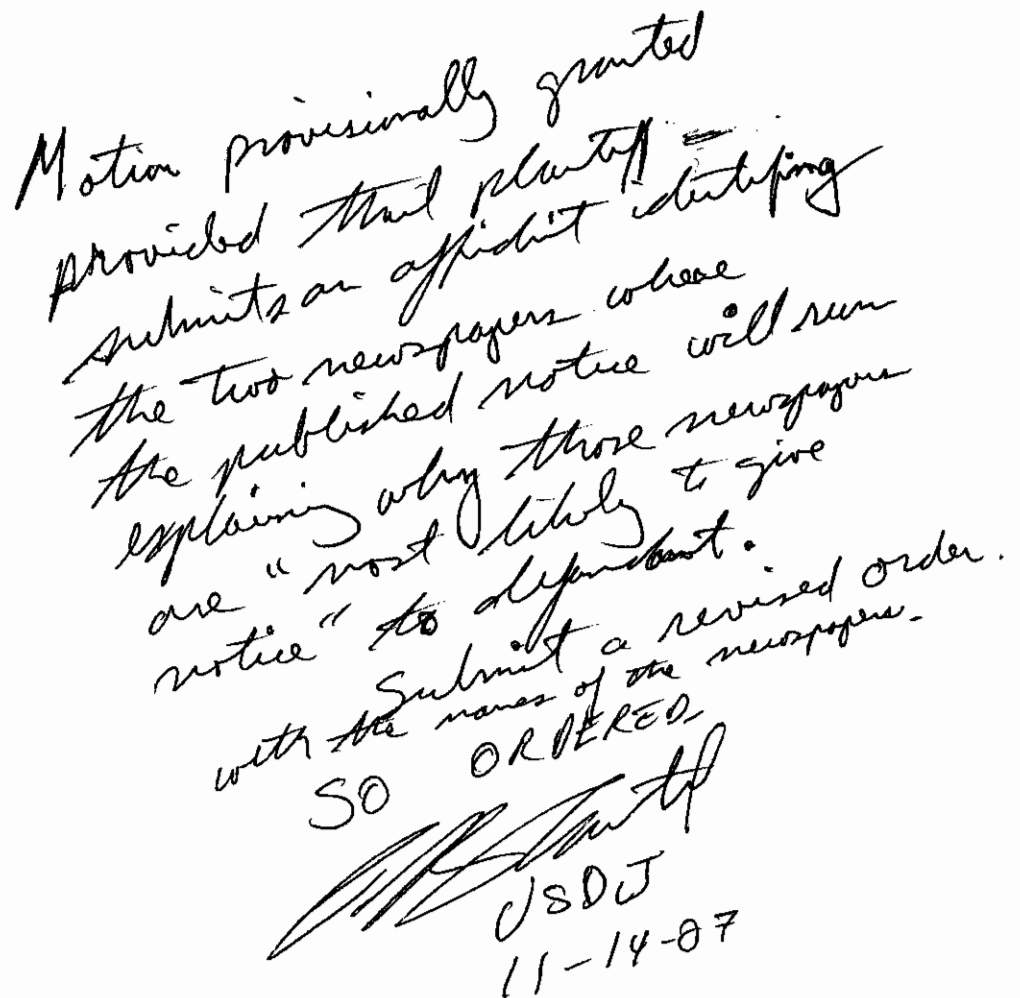 Motion provisionally granted
provided that plaintiff
submits an affidavit identifying
the two newspapers where
the published notice will run
explaining why those newspapers
are "most likely to give
notice" to defendant.
Submit a revised order.
with the names of the newspapers.
SO ORDERED
USDJ
11-14-07